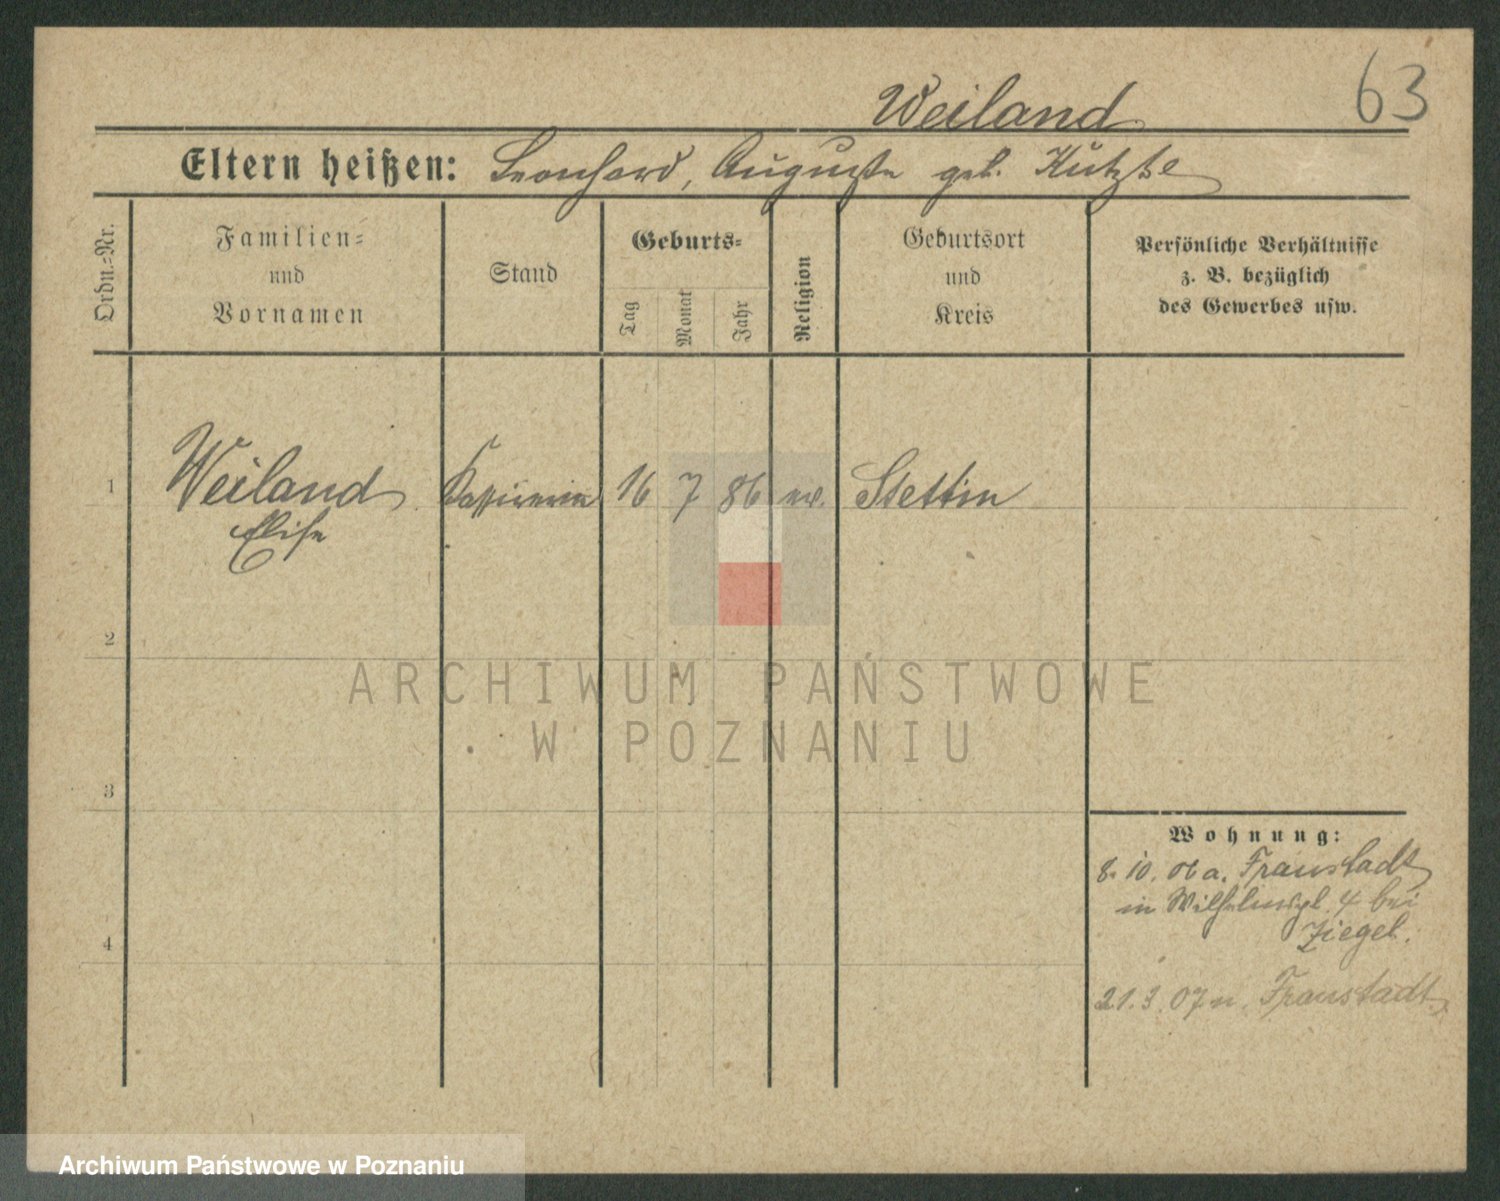 63
Weiland
Eltern heißen: Leonhard, Auguste geb. Kutzke
Ordn.-Nr.
Familien-
und
Vornamen
Stand
Geburts-
Tag
Monat
Jahr
Religion
Geburtsort
und
Kreis
Persönliche Verhältnisse
z. B. bezüglich
des Gewerbes usw.
1 Weiland Kassirerin 16 7 86 ev. Stettin
Elise
2
ARCHIWUM PAŃSTWOWE
W POZNANIU
3
Wohnung:
8. 10. 06 a. Fraustadt
in Wilhelmspl. 4 bei
Ziegel.
4
21. 3. 07 n. Fraustadt
Archiwum Państwowe w Poznaniu